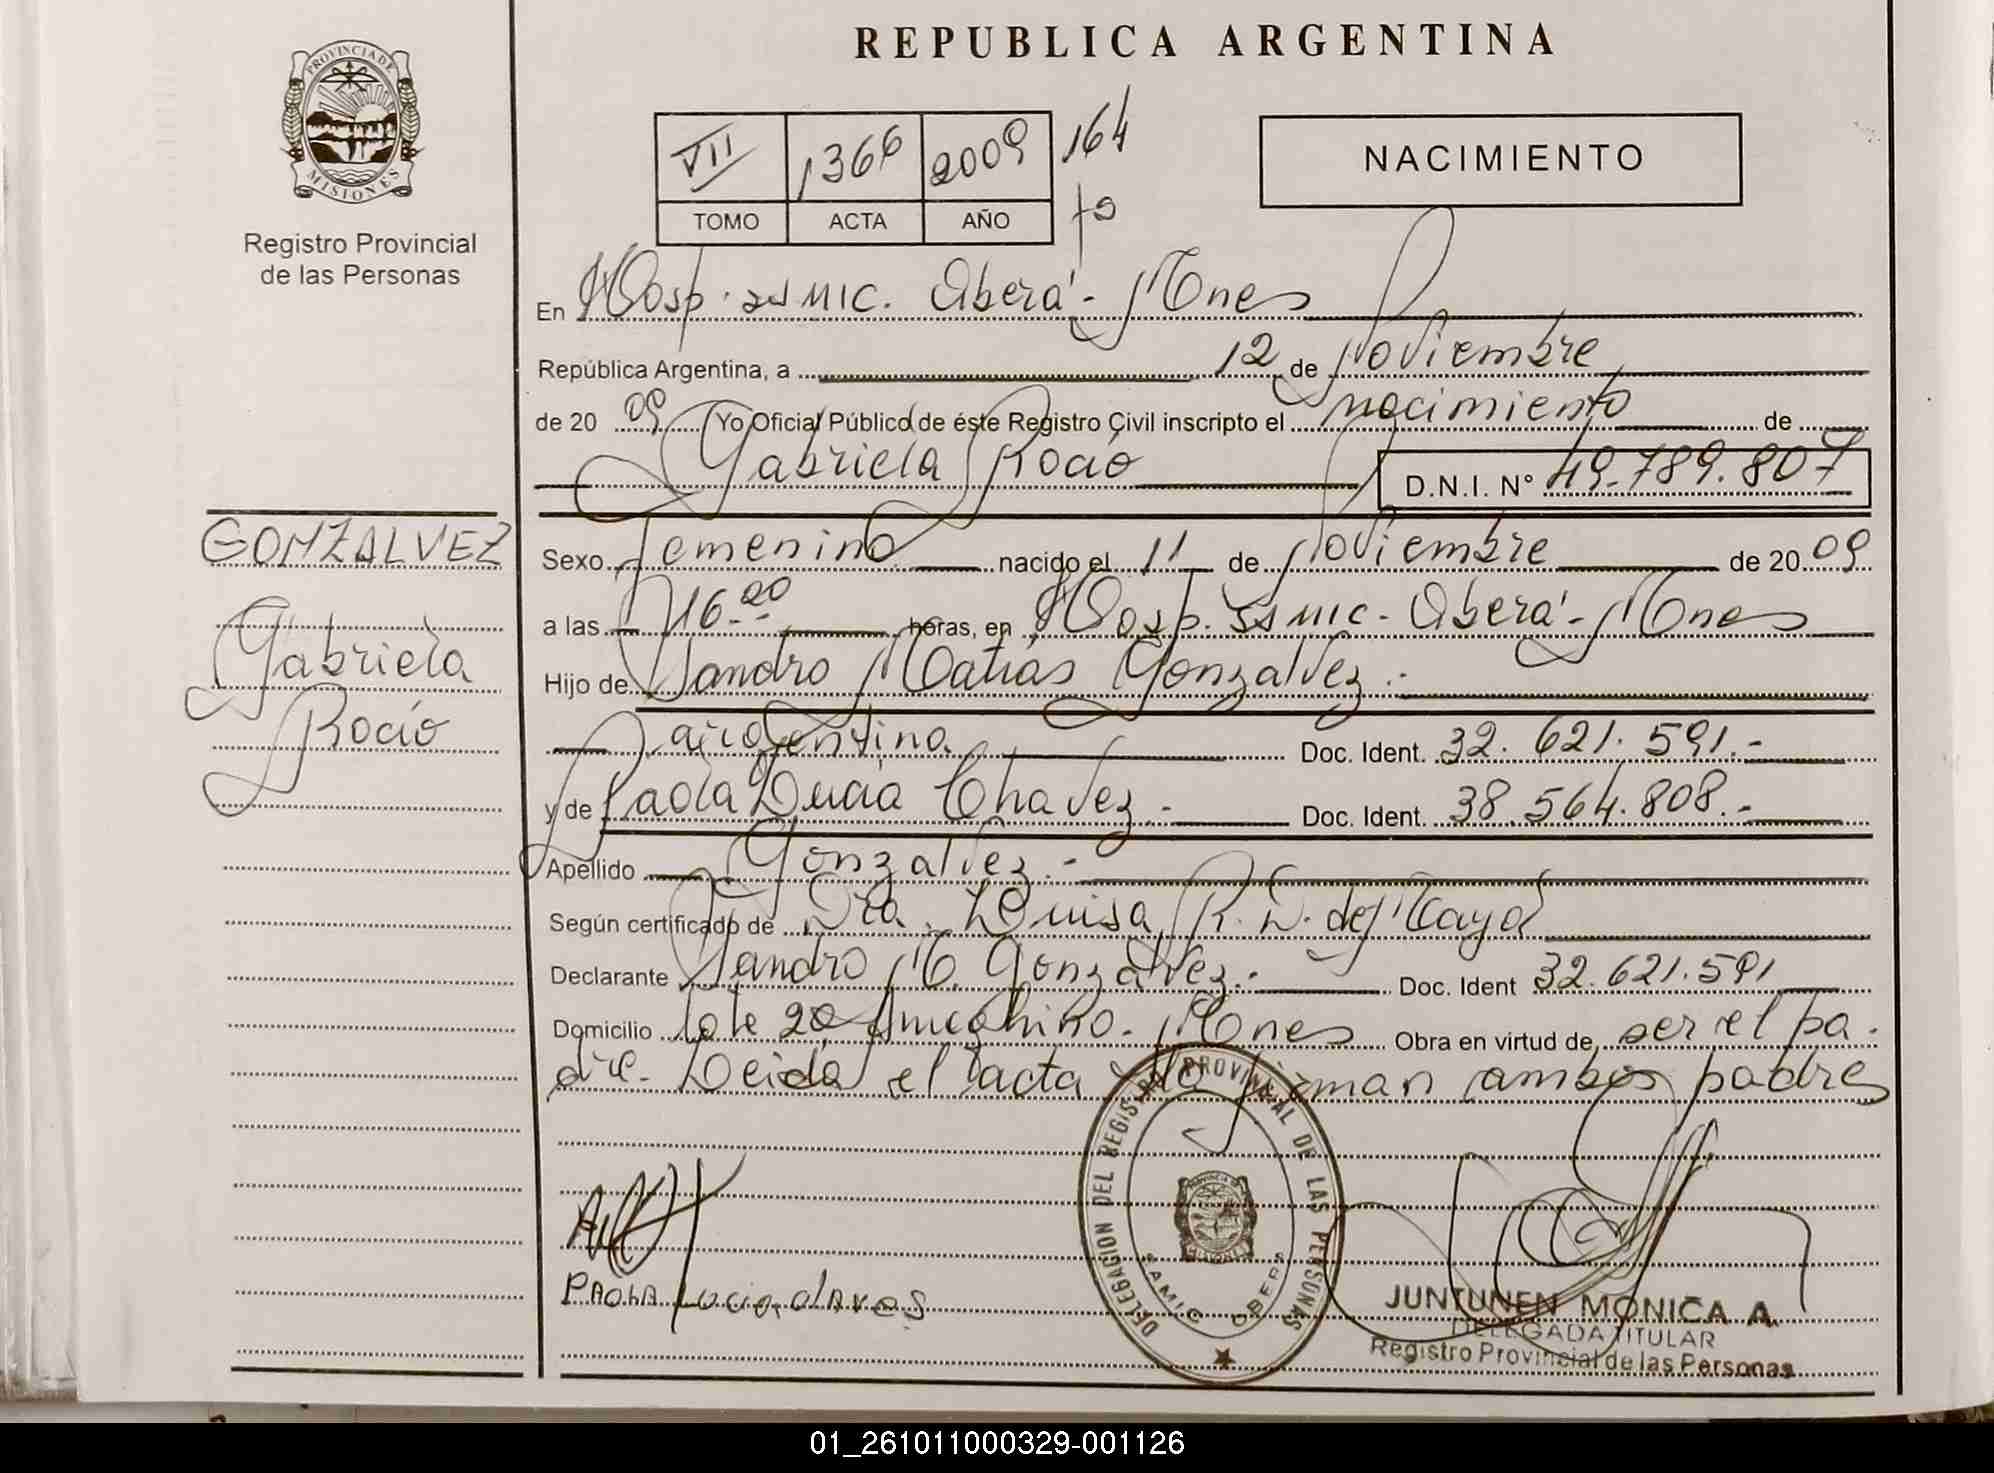 REPUBLICA ARGENTINA
PROVINCIA DE MISIONES
Registro Provincial
de las Personas
VII 1366 2009 164
TOMO ACTA AÑO fs
NACIMIENTO
En Hosp. SAMIC. Oberá - Mnes
República Argentina, a 12 de Noviembre
de 2009 Yo Oficial Público de éste Registro Civil inscripto el nacimiento de
Gabriela Rocío D.N.I. N° 49.789.807
GONZALVEZ
Gabriela
Rocío
Sexo Femenino nacido el 11 de Noviembre de 2009
a las 16.20 horas, en Hosp. SAMIC - Oberá - Mnes
Hijo de Sandro Matías Gonzalvez.-
argentino Doc. Ident. 32.621.591.-
y de Paola Lucía Chavez.- Doc. Ident. 38.564.808.-
Apellido Gonzalvez.-
Según certificado de Dra. Luisa R. D. de
Declarante Sandro M. Gonzalvez.- Doc. Ident 32.621.591
Domicilio lote 20 Ameghino - Mnes Obra en virtud de ser el pa-
dre - Leída el acta la firman ambos padres
PAOLA Lucia
DELEGACION DEL REGISTRO PROVINCIAL DE LAS PERSONAS
SAMIC OBERA
JUNTUNEN MONICA A.
DELEGADA TITULAR
Registro Provincial de las Personas
01_261011000329-001126